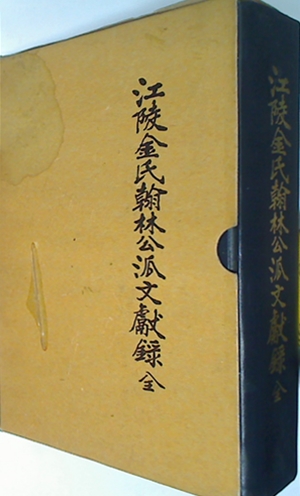 江陵金氏翰林公派文獻錄 全
江陵金氏翰林公派文獻錄 全